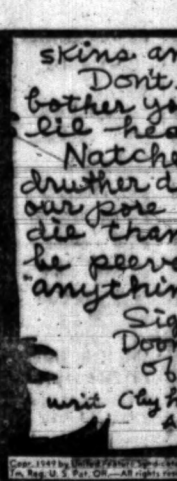 skins an
Don't
bother yo
lil hea
Natche
druther d
our pore
die than
be peeve
"anythin
Sig
Doo
of
writ Clay h
Copr. 1949 by United Feature Syndicate
Tm. Reg. U. S. Pat. Off.—All rights res